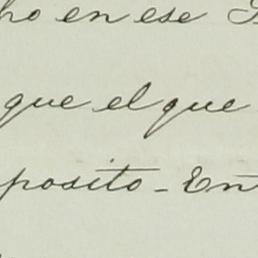 ho en ese
que el que
posito - En